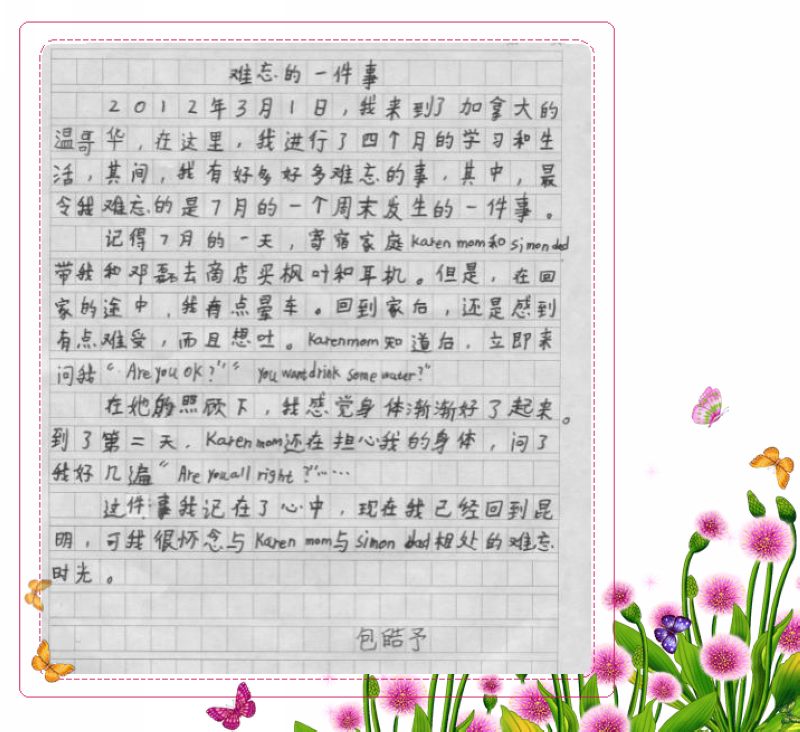 难忘的一件事
2012年3月1日，我来到了加拿大的
温哥华，在这里，我进行了四个月的学习和生
活，其间，我有好多好多难忘的事，其中，最
令我难忘的是7月的一个周末发生的一件事。
记得7月的一天，寄宿家庭Karen mom和simon dad
带我和邓磊去商店买枫叶和耳机。但是，在回
家的途中，我有点晕车。回到家后，还是感到
有点难受，而且想吐。Karen mom知道后，立即来
问我“Are you OK?”“You want drink some water?”
在她的照顾下，我感觉身体渐渐好了起来。
到了第二天，Karen mom还在担心我的身体，问了
我好几遍“Are you all right?”……
这件事我记在了心中，现在我已经回到昆
明，可我很怀念与Karen mom与simon dad相处的难忘
时光。
包皓予